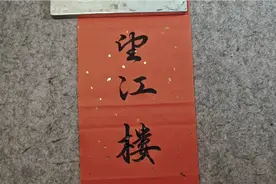 望江楼